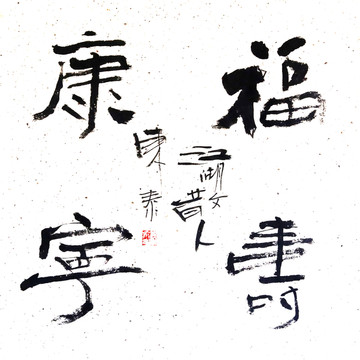 福壽
康寧
江湖散人
東泰